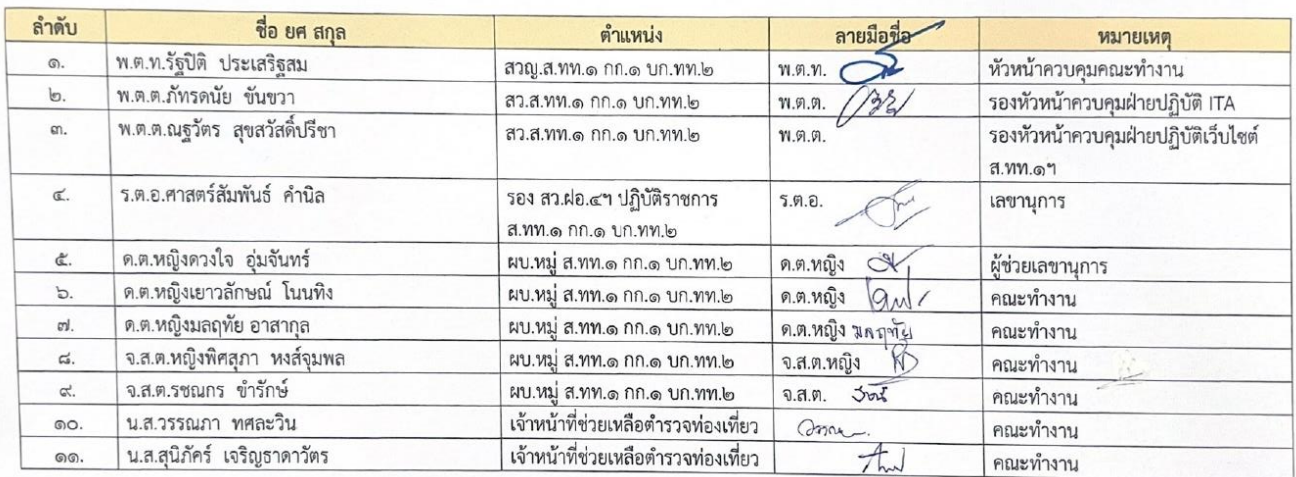 ลำดับ ชื่อ ยศ สกุล ตำแหน่ง ลายมือชื่อ หมายเหตุ
๑. พ.ต.ท.รัฐปิติ ประเสริฐสม สวญ.ส.ทท.๑ กก.๑ บก.ทท.๒ พ.ต.ท. หัวหน้าควบคุมคณะทำงาน
๒. พ.ต.ต.ภัทรดนัย ขันขวา สว.ส.ทท.๑ กก.๑ บก.ทท.๒ พ.ต.ต. รองหัวหน้าควบคุมฝ่ายปฏิบัติ ITA
๓. พ.ต.ต.ณฐวัตร สุขสวัสดิ์ปรีชา สว.ส.ทท.๑ กก.๑ บก.ทท.๒ พ.ต.ต. รองหัวหน้าควบคุมฝ่ายปฏิบัติเว็บไซต์
ส.ทท.๑ฯ
๔. ร.ต.อ.ศาสตร์สัมพันธ์ คำนิล รอง สว.ฝอ.๔ฯ ปฏิบัติราชการ ร.ต.อ. เลขานุการ
ส.ทท.๑ กก.๑ บก.ทท.๒
๕. ด.ต.หญิงดวงใจ อุ่มจันทร์ ผบ.หมู่ ส.ทท.๑ กก.๑ บก.ทท.๒ ด.ต.หญิง ผู้ช่วยเลขานุการ
๖. ด.ต.หญิงเยาวลักษณ์ โนนทิง ผบ.หมู่ ส.ทท.๑ กก.๑ บก.ทท.๒ ด.ต.หญิง คณะทำงาน
๗. ด.ต.หญิงมลฤทัย อาสากุล ผบ.หมู่ ส.ทท.๑ กก.๑ บก.ทท.๒ ด.ต.หญิง มลฤทัย คณะทำงาน
๘. จ.ส.ต.หญิงพิศสุภา หงส์จุมพล ผบ.หมู่ ส.ทท.๑ กก.๑ บก.ทท.๒ จ.ส.ต.หญิง คณะทำงาน
๙. จ.ส.ต.รชณกร ขำรักษ์ ผบ.หมู่ ส.ทท.๑ กก.๑ บก.ทท.๒ จ.ส.ต. คณะทำงาน
๑๐. น.ส.วรรณภา ทศละวิน เจ้าหน้าที่ช่วยเหลือตำรวจท่องเที่ยว คณะทำงาน
๑๑. น.ส.สุนิภัคร์ เจริญธาดาวัตร เจ้าหน้าที่ช่วยเหลือตำรวจท่องเที่ยว คณะทำงาน